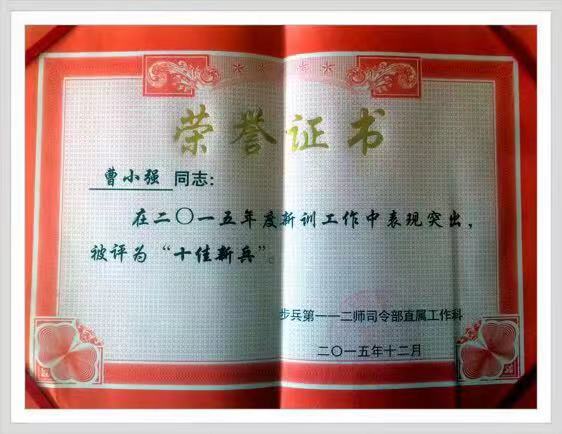 荣誉证书
曹小强 同志：
在二〇一五年度新训工作中表现突出，
被评为“十佳新兵”。
步兵第一一二师司令部直属工作科
二〇一五年十二月